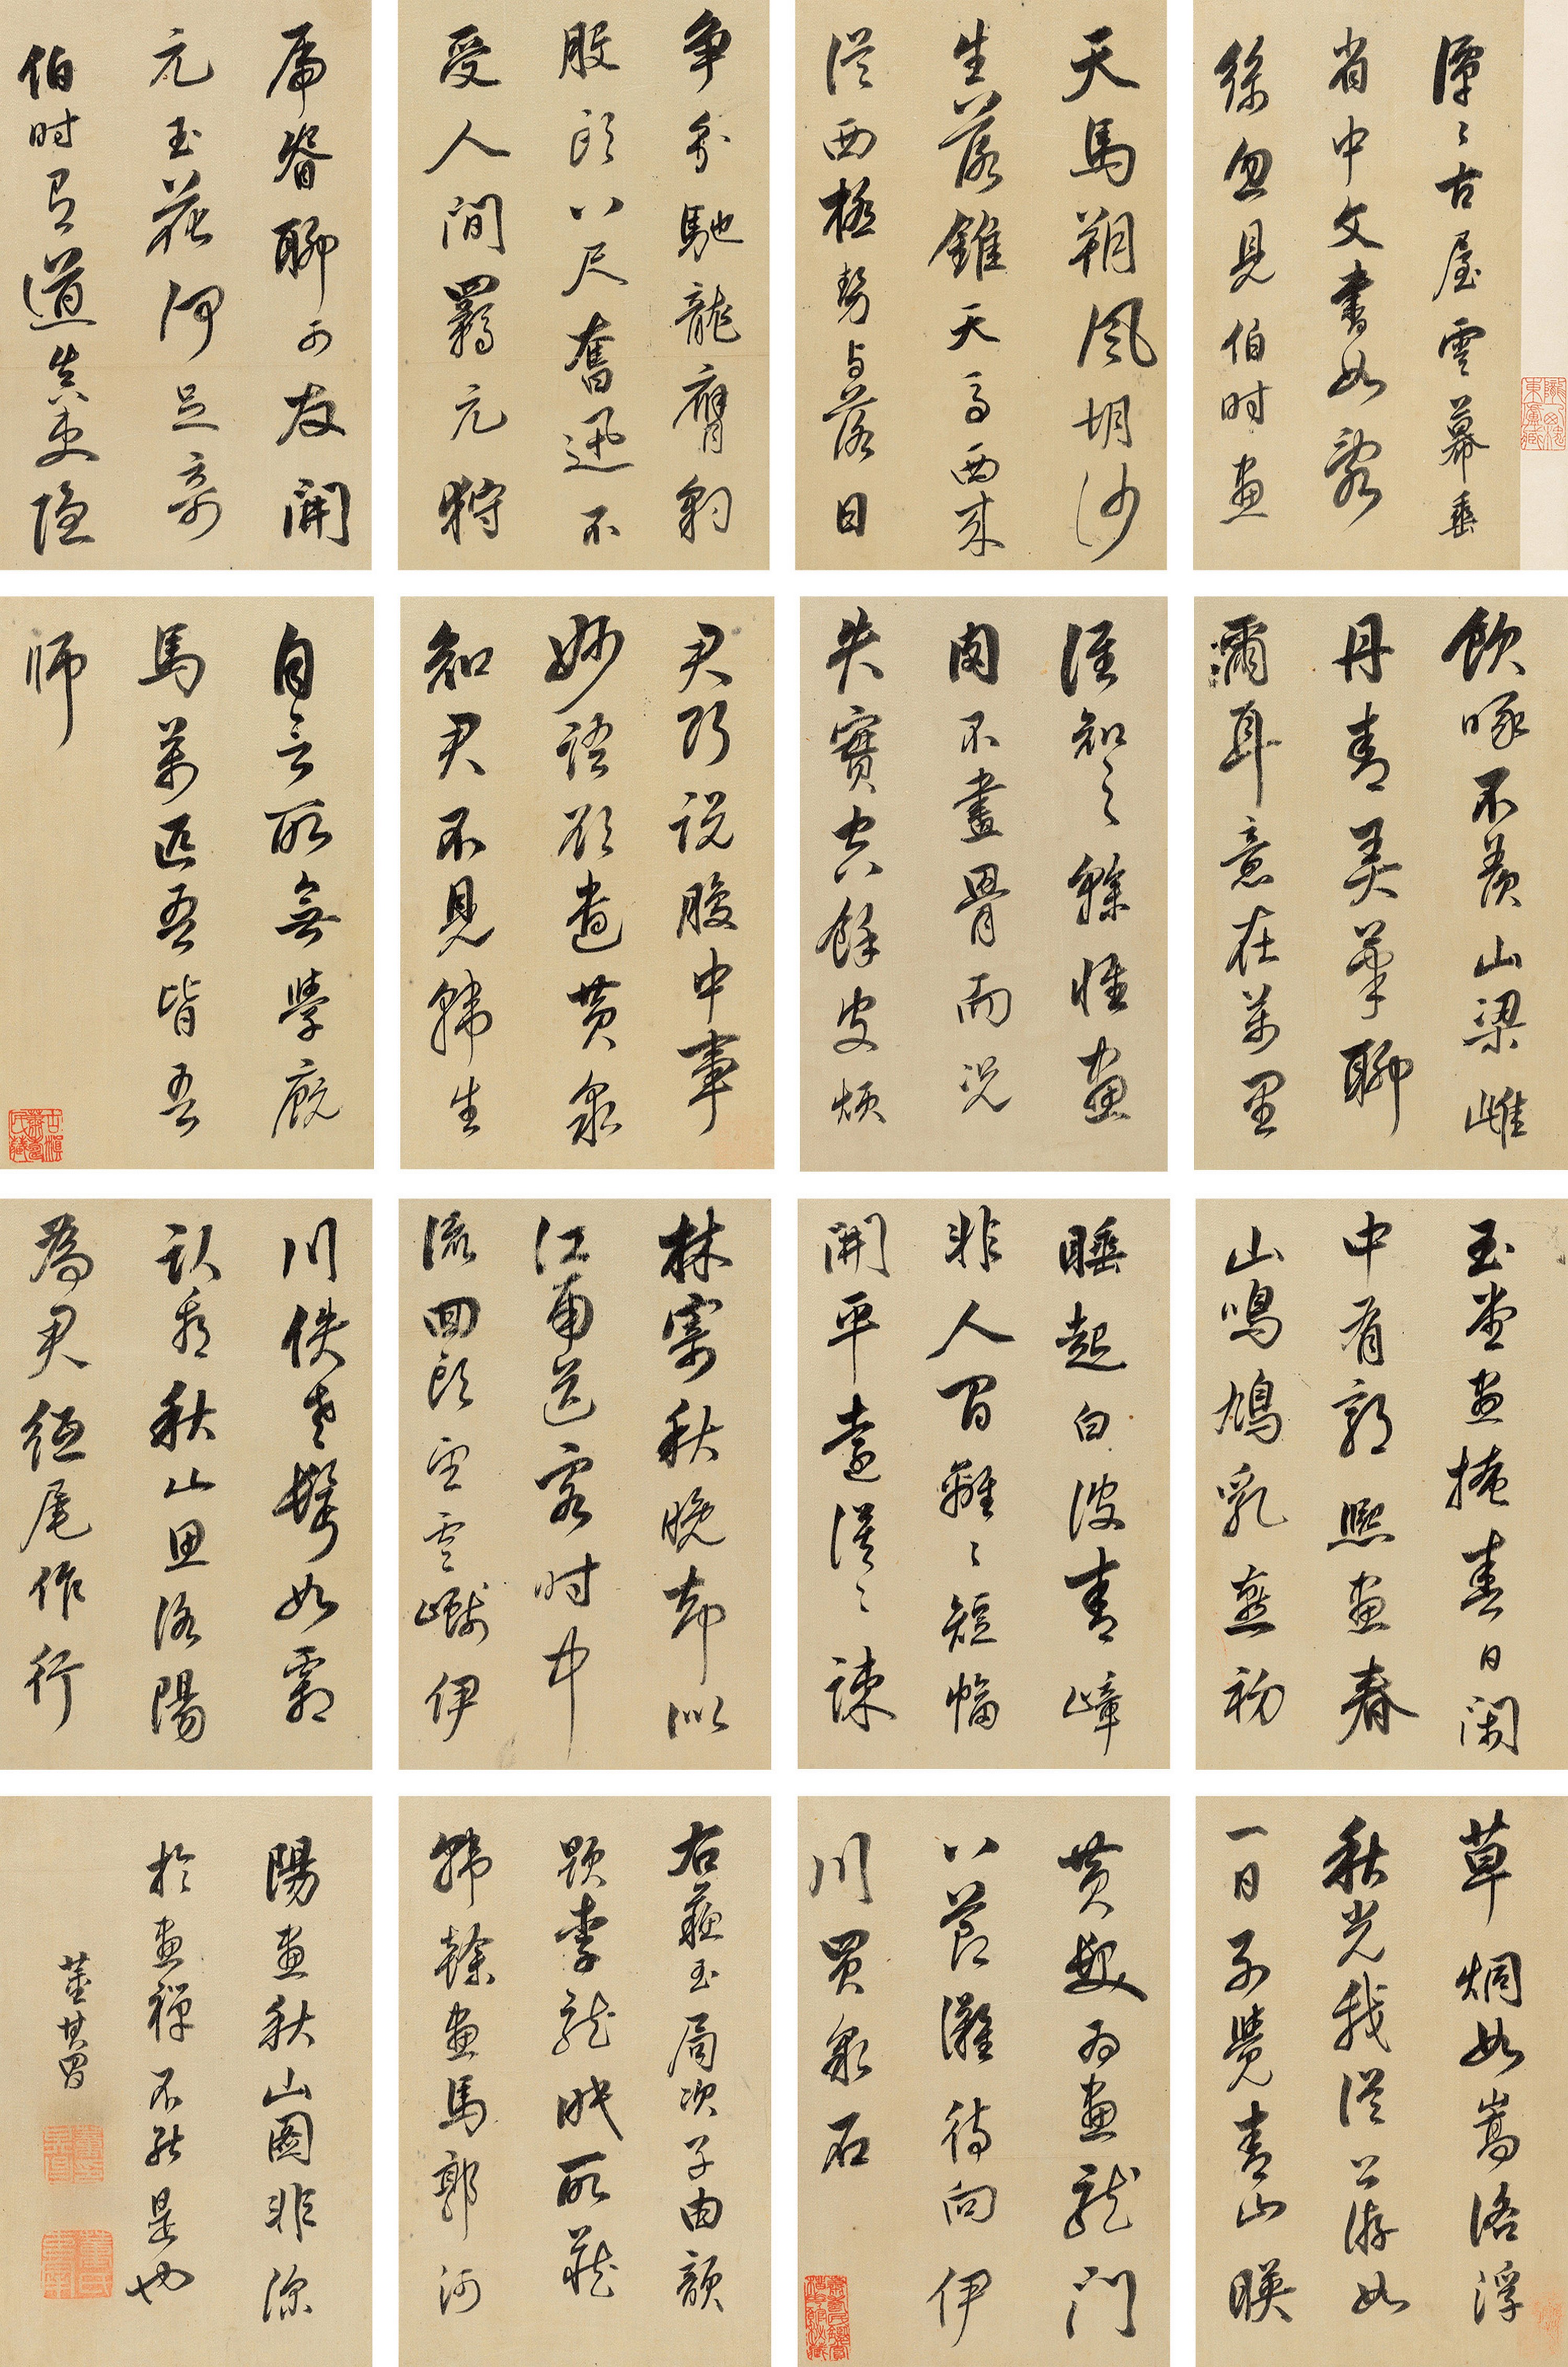 潭〻古屋雲幕垂
省中文書如亂
絲忽見伯時畫
天馬朔風胡沙
生落錐天馬西來
從西極勢與落日
爭分馳龍膺豹
股頭八尺奮迅不
受人間羈元狩
虎脊聊可友開
元玉花何足奇
伯時有道真吏隱
飲啄不羨山梁雌
丹青弄筆聊
爾耳意在萬里
誰知之幹惟畫
肉不畫骨而況
失實空餘皮煩
君巧說腹中事
妙語欲遣黃泉
知君不見韓生
自言所無學廄
馬萬匹吾皆吾
師
玉堂畫掩春日閑
中有郭熙畫春
山鳴鳩乳燕初
睡起白波青嶂
非人間離〻短幅
開平遠漠〻疎
林寄秋晚却似
江南送客時中
流回頭望雲巘伊
川佚老鬢如霜
卧看秋山思洛陽
為君紙尾作行
草炯如嵩洛浮
秋光我從公游如
一日不覺青山映
黃髮為畫龍門
八節灘待向伊
川買泉石
右蘇玉局次子由韻
題李龍眠所藏
韓幹畫馬郭河
陽畫秋山圖非深
於畫禪不能是也
董其昌